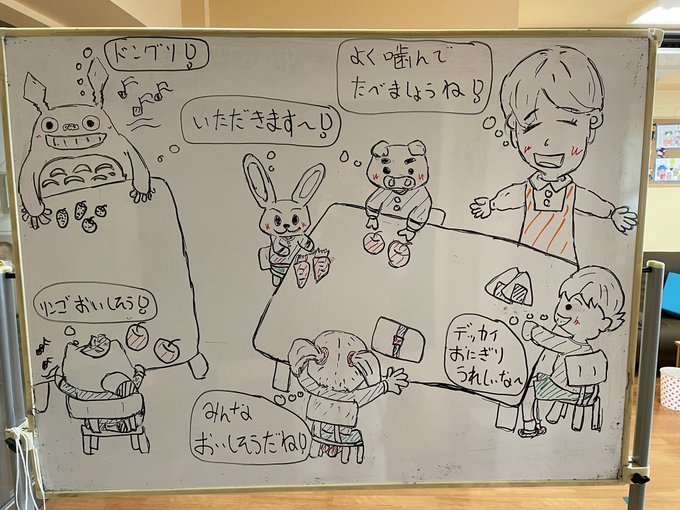 ドングリ!
よく噛んで
たべましょうね!
いただきます～!
リンゴおいしそう!
デッカイ
おにぎり
うれしいな～
みんな
おいしそうだね!